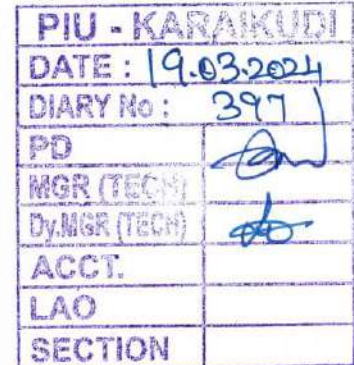 PIU - KARAIKUDI
DATE : 19.03.2024
DIARY No : 397
PD
MGR (TECH)
Dy.MGR (TECH)
ACCT.
LAO
SECTION